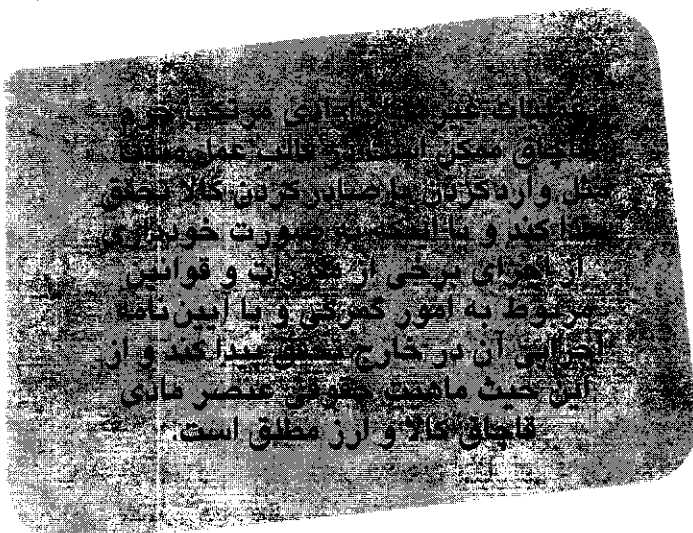 مرتکب جرم
قاچاق ممکن است در قالب عمل مثبت
مثل وارد کردن یا صادر کردن کالا تحقق
پیدا کند و یا اینکه به صورت خودداری
از اجرای برخی از مقررات و قوانین
مربوط به امور گمرکی و یا آیین نامه
اجرایی آن در خارج تحقق پیدا کند و از
این حیث ماهیت حقوقی عنصر مادی
قاچاق کالا و ارز مطلق است.